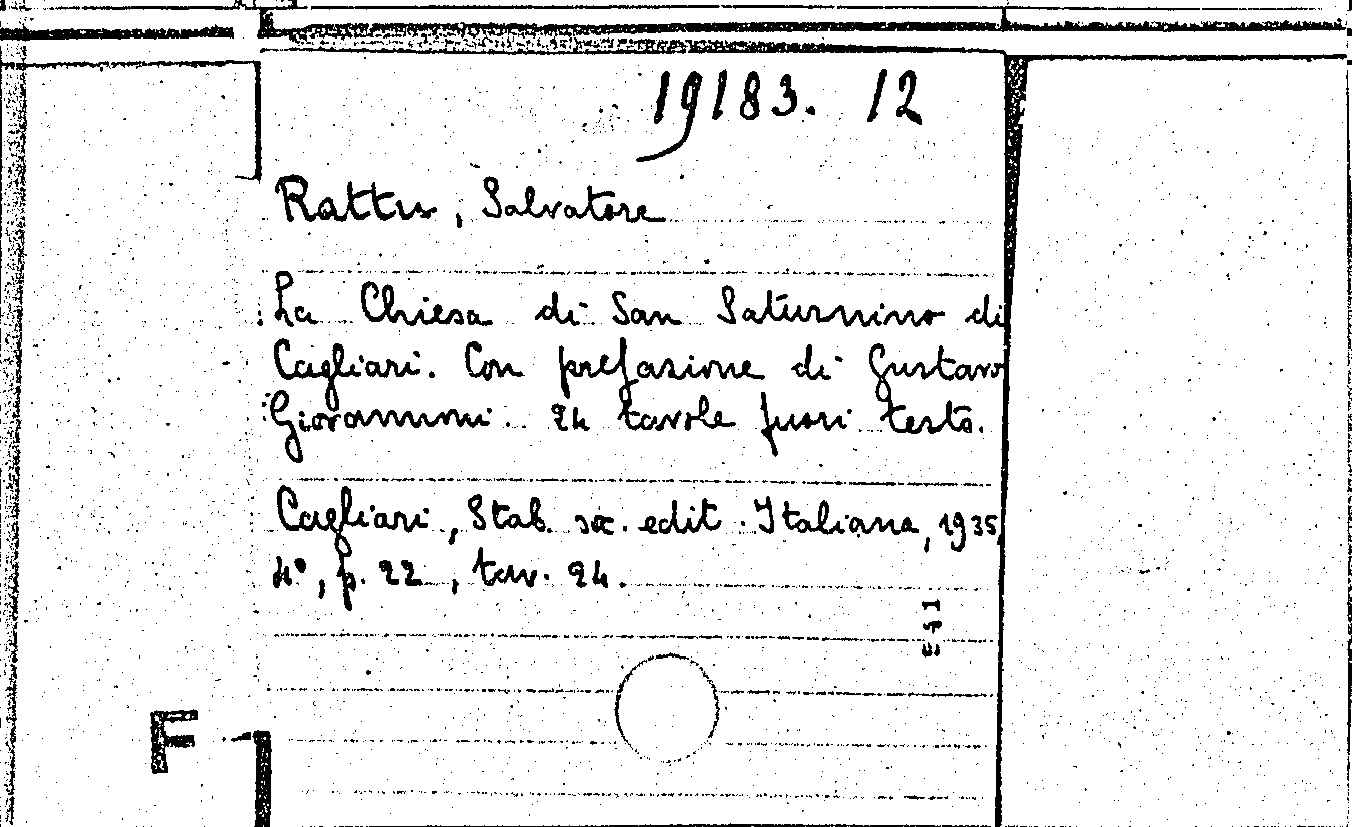 19183. 12
Rattu, Salvatore
La Chiesa di San Saturnino di
Cagliari. Con prefazione di Gustavo
Giovannoni. 24 tavole fuori testo.
Cagliari, Stab. soc. edit. Italiana, 1935,
4°, p. 22, tav. 24.
F